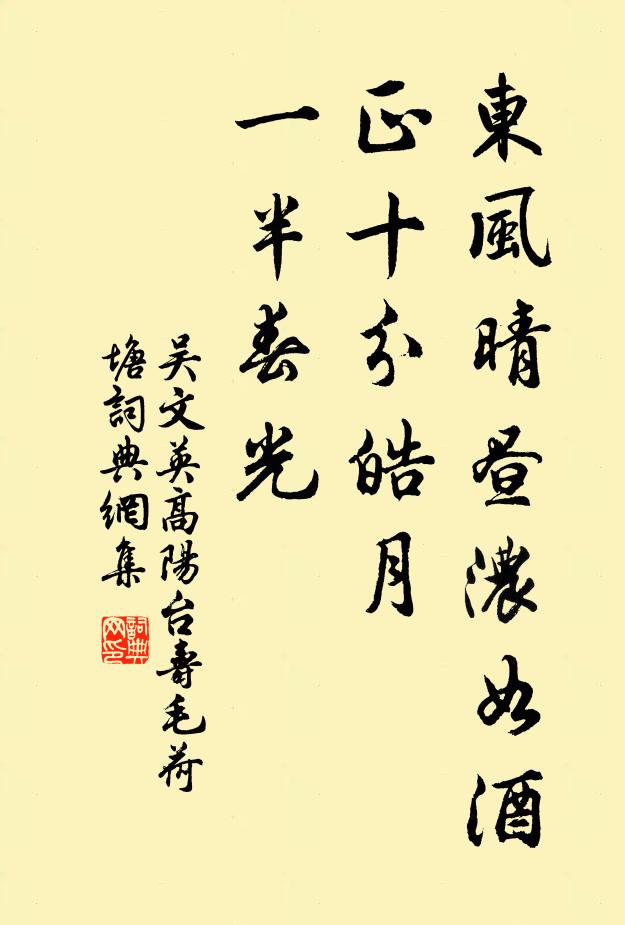 東風晴昼濃如酒
正十分皓月
一半春光
吴文英高陽台壽毛荷
塘詞典網集
詞典
网印